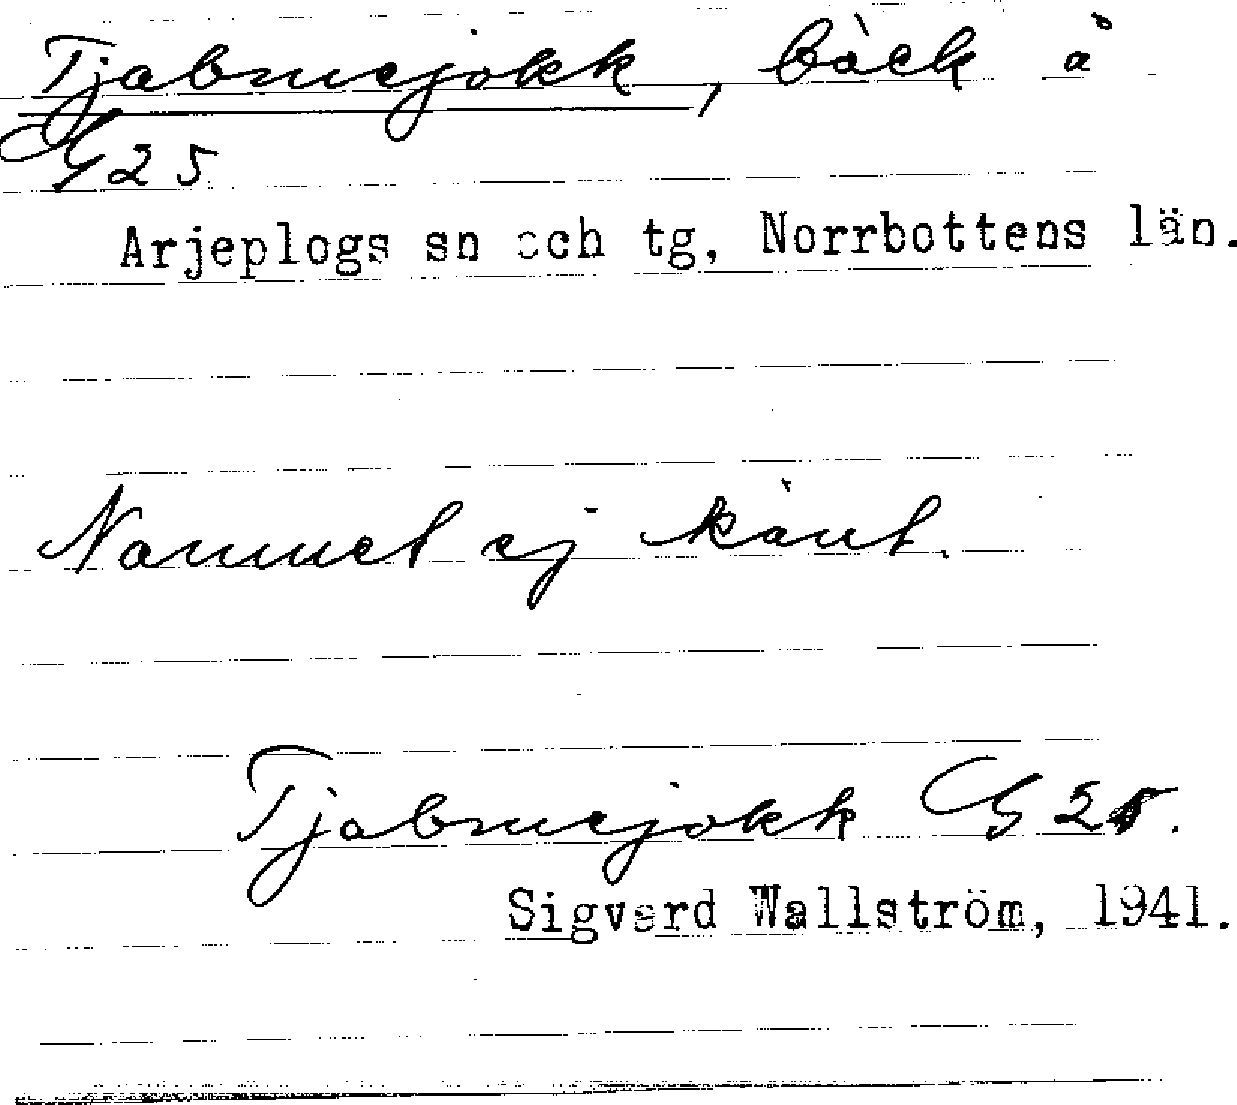 Tjabmejokk, bäck å
G 25
Arjeplogs sn och tg, Norrbottens län.
Namnet ej känt.
Tjabmejokk G 25.
Sigvard Wallström, 1941.